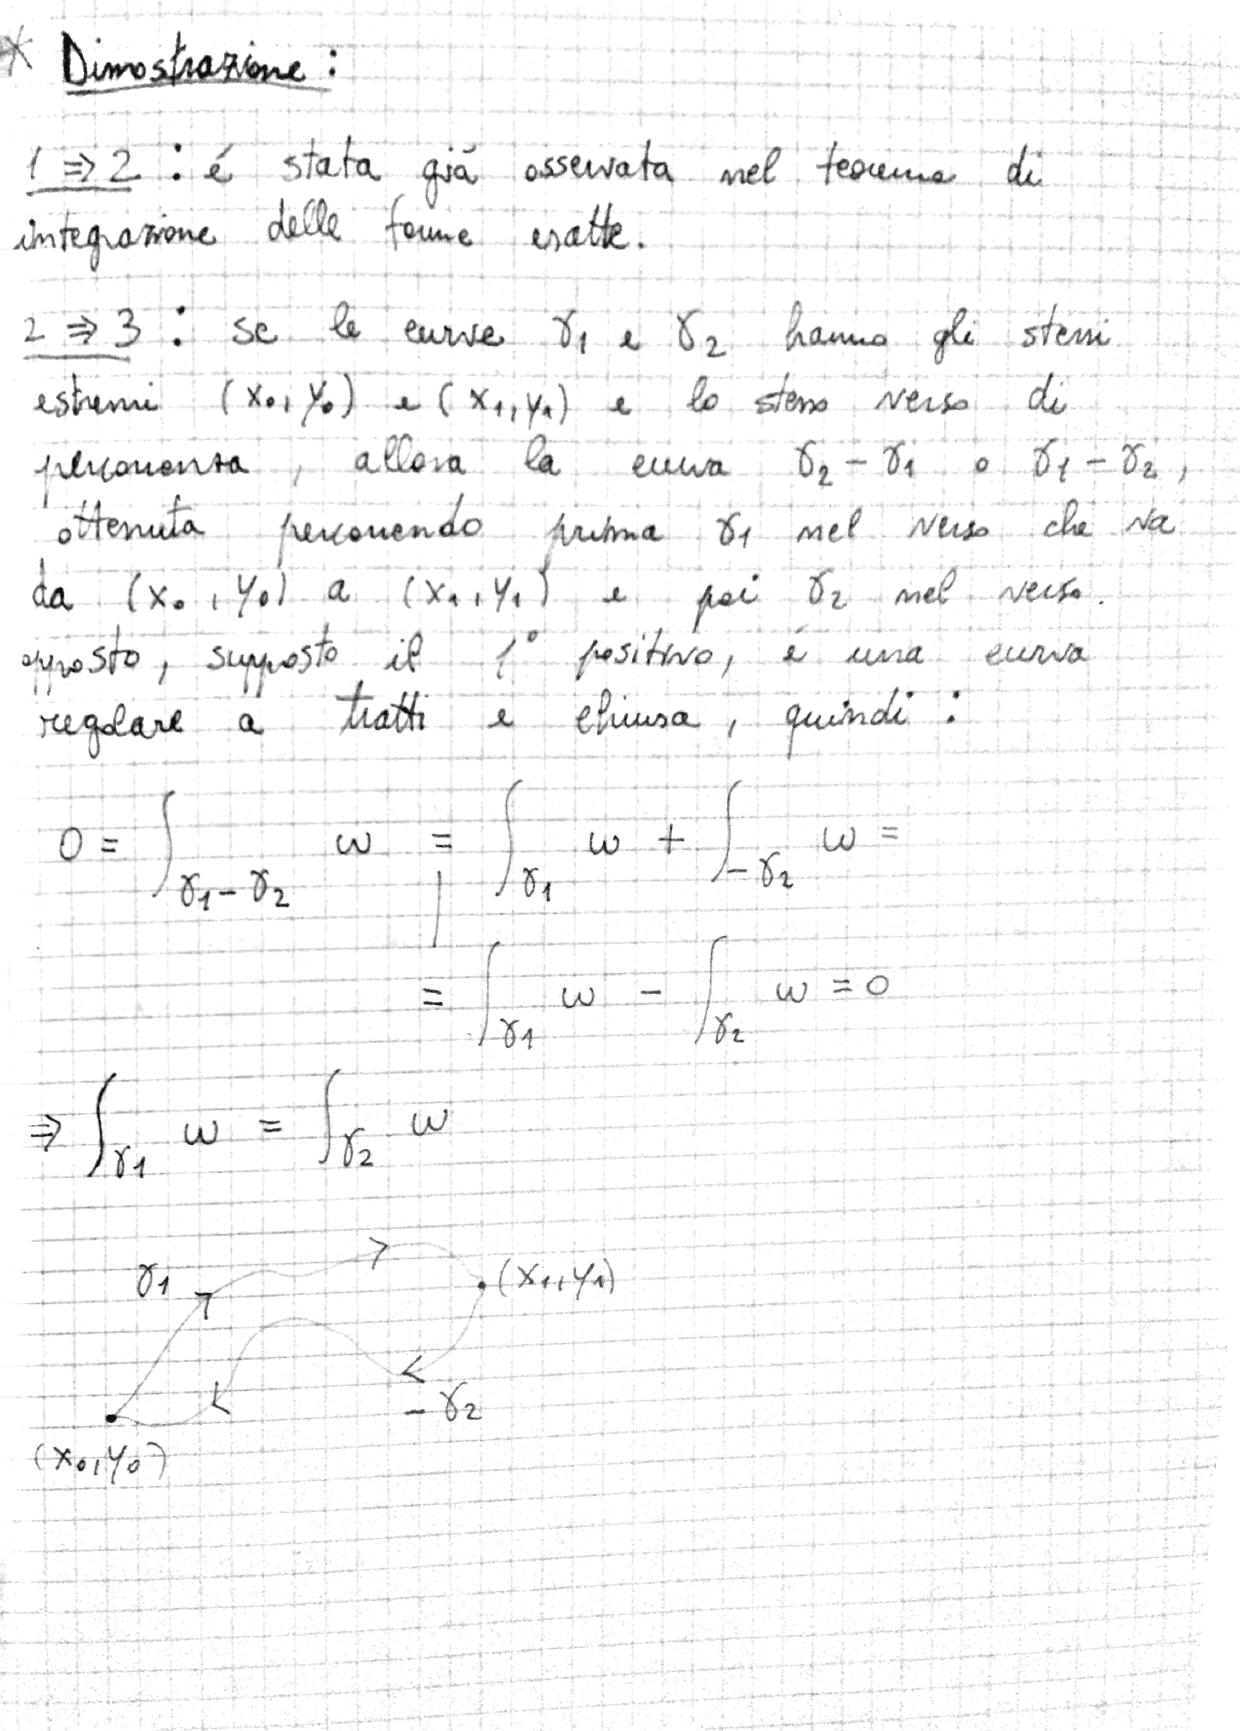 * Dimostrazione :
1 ⇒ 2 : é stata già osservata nel teorema di
integrazione delle forme esatte.
2 ⇒ 3 : se le curve γ1 e γ2 hanno gli stessi
estremi (x0, y0) e (x1, y1) e lo stesso verso di
percorrenza, allora la curva γ2 - γ1 o γ1 - γ2,
ottenuta percorrendo prima γ1 nel verso che va
da (x0, y0) a (x1, y1) e poi γ2 nel verso
opposto, supposto il 1° positivo, é una curva
regolare a tratti e chiusa, quindi :
0 = ∫γ1-γ2 ω = ∫γ1 ω + ∫-γ2 ω =
= ∫γ1 ω - ∫γ2 ω = 0
⇒ ∫γ1 ω = ∫γ2 ω
γ1
(x1, y1)
-γ2
(x0, y0)